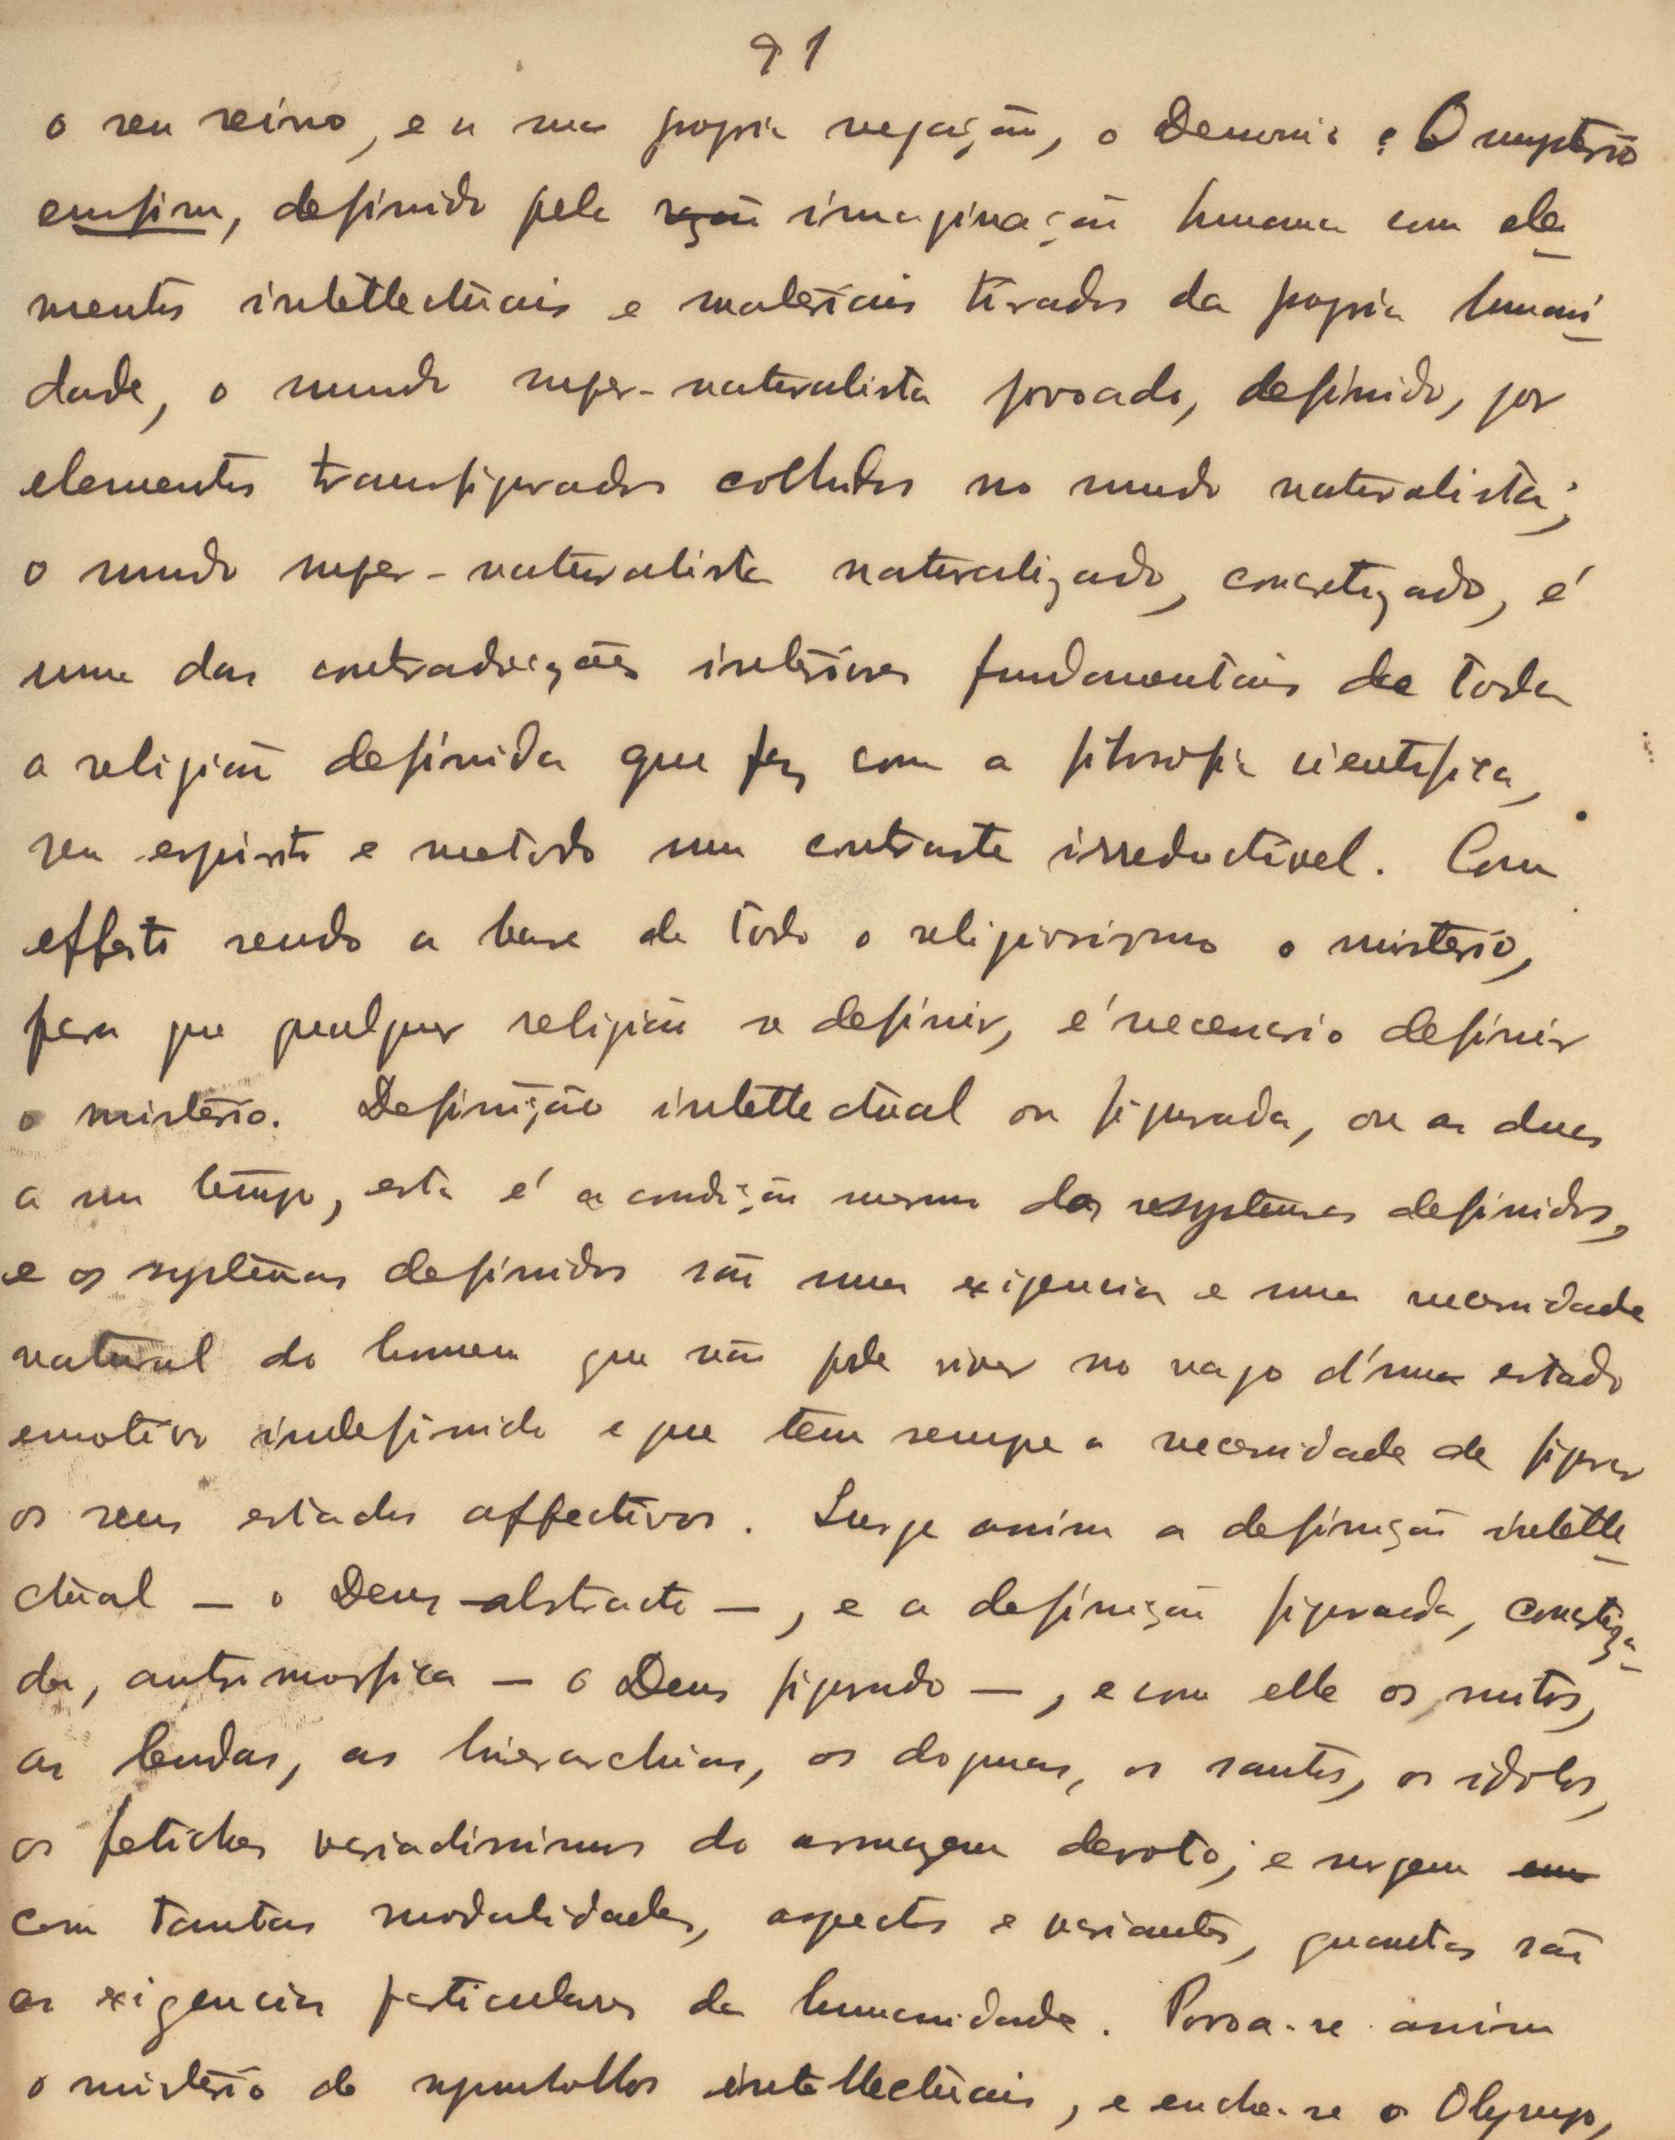 91
o seu reino, e a sua propria negação, o Demonio. O mysterio
emfim, definido pela razão imaginação humana com ele-
mentos intellectuais e materiais tirados da propria humani-
dade, o mundo super-naturalista povoado, definido, por
elementos transfigurados colhidos no mundo naturalista;
o mundo super-naturalista naturalizado, concretizado, é
uma das contradicções interiores fundamentais de toda
a religião definida que faz com a filosofia cientifica,
seu espirito e metodo um contraste irreductivel. Com
effeito sendo a base de todo o religiosismo o misterio,
para que qualquer religião se definir, é necessario definir
o misterio. Definição intellectual ou figurada, ou as duas
a um tempo, esta é a condição mesma dos systemas definidos,
e os systemas definidos são uma exigencia e uma necessidade
natural do homem que não pode viver no vago d'um estado
emotivo indefinido e que tem sempre a necessidade de figurar
os seus estados affectivos. Surge assim a definição intelle-
ctual — o Deus abstracto —, e a definição figurada, concretiza-
da, antromorfica — o Deus figurado —, e com elle os mitos,
as lendas, as hierarchias, os dogmas, os santos, os idolos,
os fetiches variadissimos do armazem devoto; e surgem em
com tantas modalidades, aspectos e variantes, quantas são
as exigencias particulares da humanidade. Povoa-se assim
o misterio de symbollos intellectuais, e enche-se o Olympo,